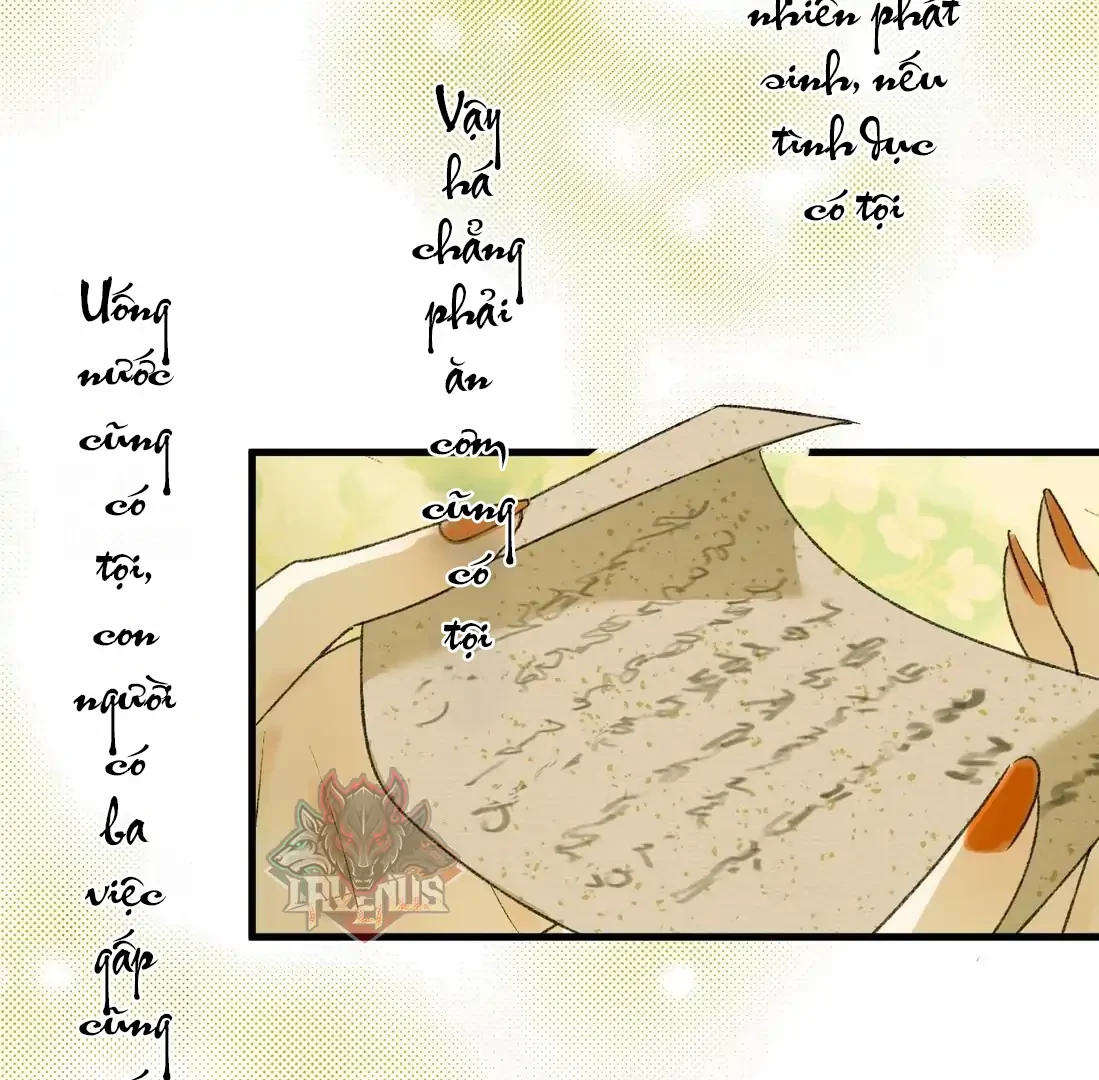 nhiên phát
sinh, nếu
tình dục
có tội
Vậy
há
chẳng
phải
ăn
cơm
cũng
có
tội
Uống
nước
cũng
có
tội,
con
người
có
ba
việc
gấp
cũng